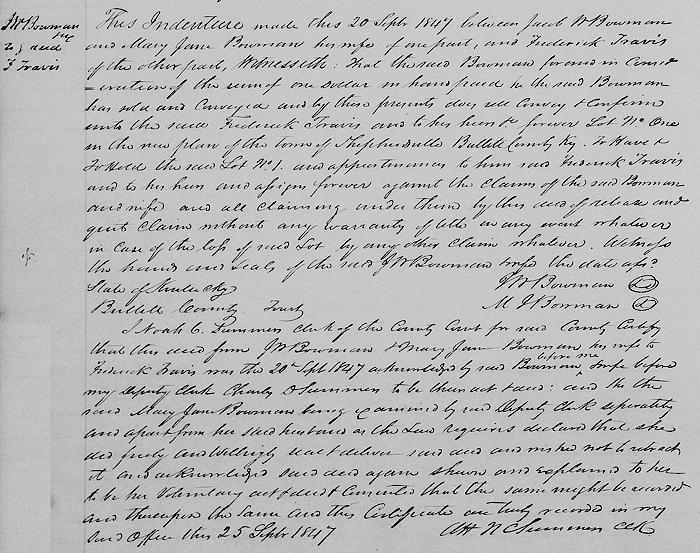 J W Bowman
&c
to } deed
F Travis
This Indenture made this 20 Septr 1847 between Jacob W Bowman
and Mary Jane Bowman his wife of one part, and Frederick Travis
of the other part, Witnesseth: That the said Bowman for and in consid
=eration of the sum of one dollar in hand paid to the said Bowman
has sold and conveyed and by these presents does sell Convey & Confirm
unto the said Frederick Travis and to his heirs &c forever Lot No. One
in the new plan of the town of Shepherdsville Bullitt County Ky. To Have &
To Hold the said Lot No 1. and appurtenances to him said Frederick Travis
and to his heirs and assigns forever against the Claims of the said Bowman
and wife and all claiming under them by this deed of release and
quit Claim without any warranty of title in any event whatever
in Case of the loss of said Lot by any other Claim whatever. Witness
the hands and seals of the said J W Bowman & wife the date afsd.
State of Kentucky J W Bowman
Bullitt County Sct M J Bowman
I Noah C. Summers clerk of the County Court for said County Certify
that this deed from J W Bowman & Mary Jane Bowman his wife to
Frederick Travis was the 20th Sept 1847 acknowledged by said Bowman before me & wife before
my Deputy Clerk Charles D Summers to be their act & deed: and she the
said Mary Jane Bowman being examined by said Deputy clerk seperately
and apart from her said husband as the Law requires declared that she
did freely and willingly seal & deliver said deed and wished not to retract
it and acknowledged said deed again shewn and explained to her
to be her Voluntary act & deed & Consented that the same might be recorded
and thereupon the same and this Certificate are truly recorded in my
Office this 25 Septr 1847 Att N C Summers clk